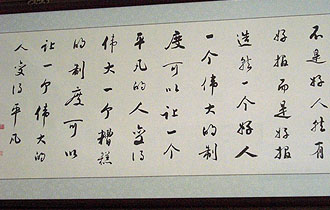 不是好人能有
好报而是好报
造就一个好人
一个伟大的制
度可以让一个
平凡的人变得
伟大一个糟糕
的制度可以
让一个伟大的
人变得平凡